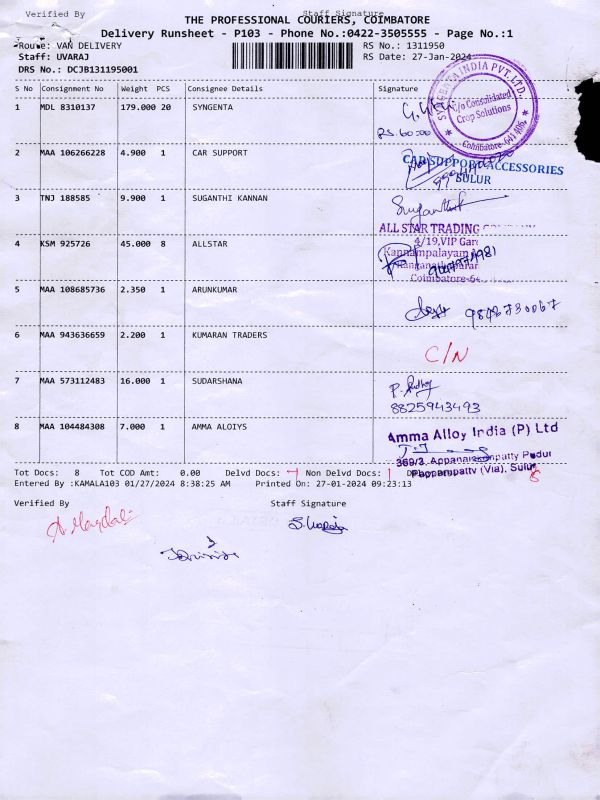 Verified By Staff Signature
THE PROFESSIONAL COURIERS, COIMBATORE
Delivery Runsheet - P103 - Phone No.:0422-3505555 - Page No.:1
Route: VAN DELIVERY RS No.: 1311950
Staff: UVARAJ RS Date: 27-Jan-2024
DRS No.: DCJB131195001
S No Consignment No Weight PCS Consignee Details Signature
1 MDL 8310137 179.000 20 SYNGENTA
SYNGENTA INDIA PVT. LTD.,
C/o Consolidated
Crop Solutions
Coimbatore- 641 406.
RS. 60.00
2 MAA 106266228 4.900 1 CAR SUPPORT
CAR SUPPORT ACCESSORIES
SULUR
3 TNJ 188585 9.900 1 SUGANTHI KANNAN
4 KSM 925726 45.000 8 ALLSTAR
ALL STAR TRADING
4/19, VIP Gar
Kannampalayam
Coimbatore-6
5 MAA 108685736 2.350 1 ARUNKUMAR
9846730067
6 MAA 943636659 2.200 1 KUMARAN TRADERS
C/N
7 MAA 573112483 16.000 1 SUDARSHANA
8825943493
8 MAA 104484308 7.000 1 AMMA ALOIYS
Amma Alloy India (P) Ltd
369/3, Appanaickenpatty Pudur
Pappampatty (Via), Sulur
Tot Docs: 8 Tot COD Amt: 0.00 Delvd Docs: 7 Non Delvd Docs: 1 8
Entered By :KAMALA103 01/27/2024 8:38:25 AM Printed On: 27-01-2024 09:23:13
Verified By Staff Signature